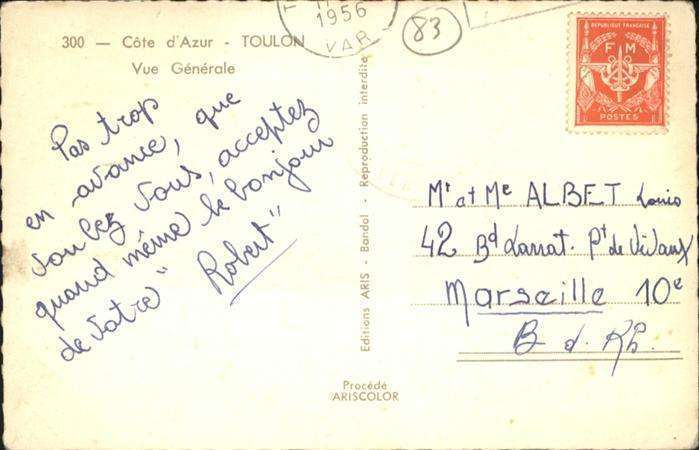 300 — Côte d'Azur - TOULON
Vue Générale
1956
VAR
83
RÉPUBLIQUE FRANÇAISE
F M
POSTES
Pas trop
en avance, que
voulez vous, acceptez
quand même le bonjour
de votre "Robert"
Editions ARIS - Bandol - Reproduction interdite
Mr et Me ALBET Louis
42 Bd Larrat. Pt de Vivaux
Marseille 10e
B d. Rh.
Procédé
ARISCOLOR